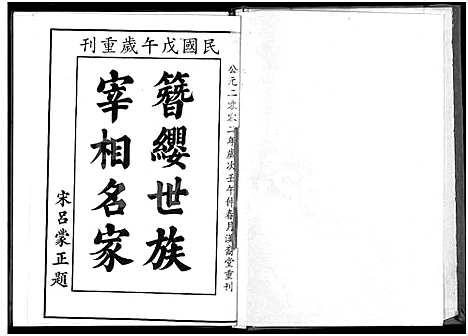 民國戊午歲重刊
公元二零零二年歲次壬午仲春月漢裔堂重刊
簪纓世族
宰相名家
宋呂蒙正題